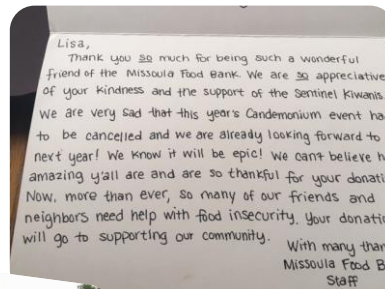 Lisa,
Thank you so much for being such a wonderful
friend of the Missoula Food Bank. We are so appreciative
of your kindness and the support of the Sentinel Kiwanis.
We are very sad that this year's Candemonium event ha
to be cancelled and we are already looking forward to
next year! We know it will be epic! We can't believe h
amazing y'all are and are so thankful for your donati
Now, more than ever, so many of our friends and
neighbors need help with food insecurity. Your donatio
will go to supporting our community.
With many than
Missoula Food B
Staff